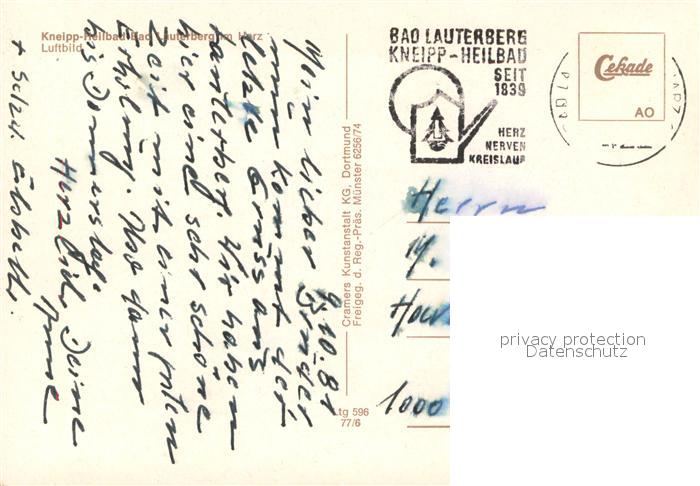 Kneipp-Heilbad Bad Lauterberg im Harz
Luftbild
9.10.81
Mein lieber
nun kommt der
letzte Gruss aus
Lauterberg. Wir haben
hier eine sehr schöne
Zeit mit einer guten
Erholung. Noch dann
bis Donnerstag.
Herzlich Deine
Anne
+ Schw. Elsbeth.
Cramers Kunstanstalt KG, Dortmund
Freigeg. d. Reg.-Präs. Münster 6256/74
Ltg 596
77/6
BAD LAUTERBERG
KNEIPP-HEILBAD
SEIT
1839
HERZ
NERVEN
KREISLAUF
Cekade
AO
Herrn
M.
1000
privacy protection
Datenschutz